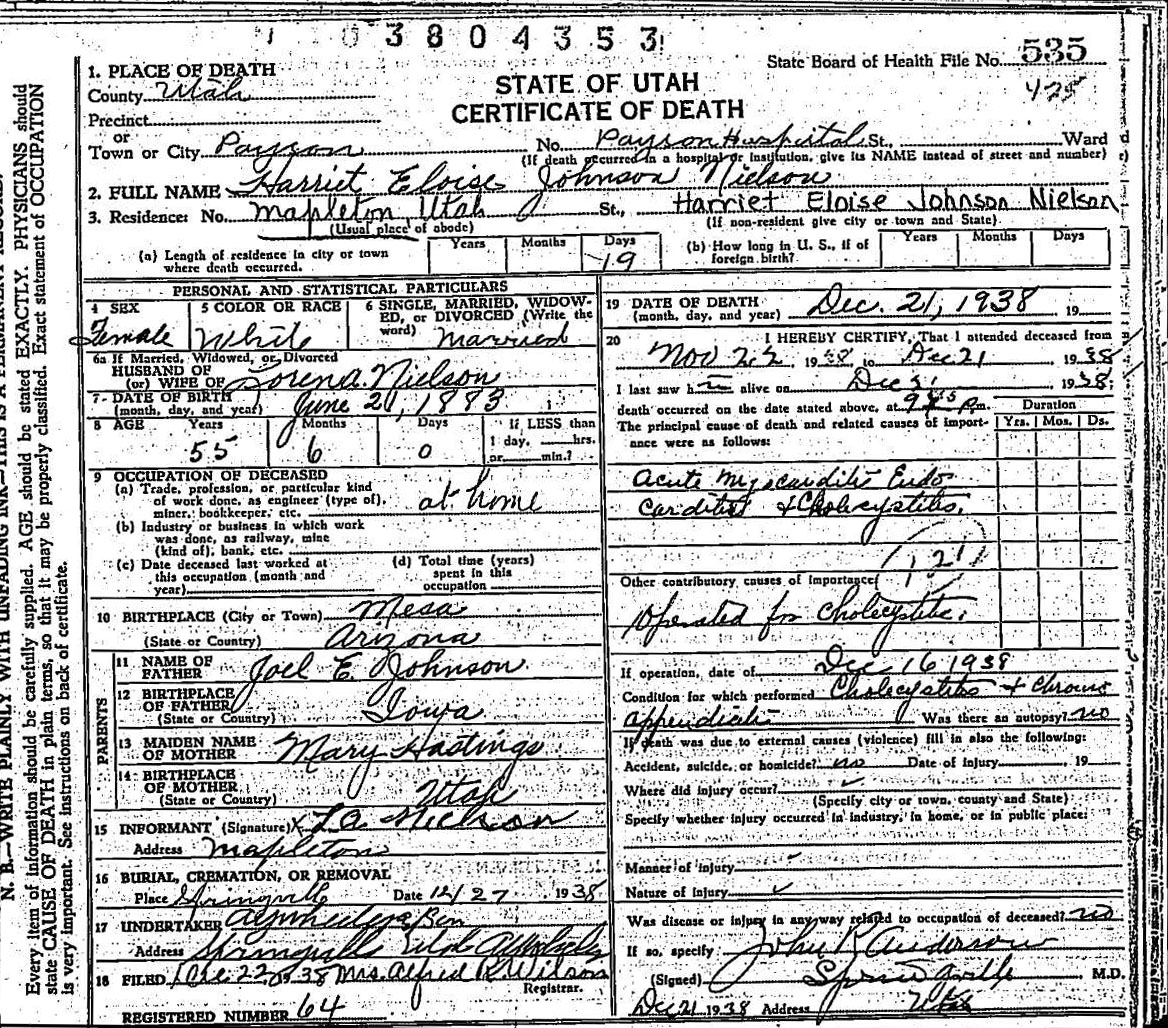 1 0 3 8 0 4 3 5 3
State Board of Health File No. 535
425
STATE OF UTAH
CERTIFICATE OF DEATH
1. PLACE OF DEATH
County Utah
Precinct
or
Town or City Payson No. Payson Hospital St., Ward
(If death occurred in a hospital or institution, give its NAME instead of street and number)
2. FULL NAME Harriet Eloise Johnson Nielson
3. Residence: No. Mapleton, Utah St., Harriet Eloise Johnson Nielson
(Usual place of abode) (If non-resident give city or town and State)
(a) Length of residence in city or town where death occurred. Years Months Days 19
(b) How long in U. S., if of foreign birth? Years Months Days
PERSONAL AND STATISTICAL PARTICULARS
4 SEX Female
5 COLOR OR RACE White
6 SINGLE, MARRIED, WIDOWED, or DIVORCED (Write the word) Married
6a If Married, Widowed, or Divorced
HUSBAND OF
(or) WIFE OF Nielson
7 DATE OF BIRTH
(month, day, and year) June 21, 1883
8 AGE Years 55 Months 6 Days 0 If LESS than 1 day, hrs. or min.?
9 OCCUPATION OF DECEASED
(a) Trade, profession, or particular kind
of work done, as engineer (type of),
miner, bookkeeper, etc. at home
(b) Industry or business in which work
was done, as railway, mine
(kind of), bank, etc.
(c) Date deceased last worked at
this occupation (month and
year)
(d) Total time (years)
spent in this
occupation
10 BIRTHPLACE (City or Town) Mesa
(State or Country) Arizona
PARENTS
11 NAME OF FATHER Joel E. Johnson
12 BIRTHPLACE OF FATHER
(State or Country) Iowa
13 MAIDEN NAME OF MOTHER Mary Hastings
14 BIRTHPLACE OF MOTHER
(State or Country) Utah
15 INFORMANT (Signature) X L A Nielson
Address Mapleton
16 BURIAL, CREMATION, OR REMOVAL
Place Springville Date 12/27 1938
17 UNDERTAKER
Address Springville Utah
18 FILED Dec 22, 1938 Mrs. Alfred R. Wilson
Registrar.
REGISTERED NUMBER 64
19 DATE OF DEATH
(month, day, and year) Dec. 21, 1938 19
20 I HEREBY CERTIFY, That I attended deceased from
Nov 22 1938 to Dec 21 1938
I last saw h alive on Dec 1938;
death occurred on the date stated above, at P m.
The principal cause of death and related causes of importance were as follows:
Duration
Yrs. Mos. Ds.
Acute Myocarditis Endo
carditis & Cholecystitis.
121
Other contributory causes of importance
Operated for Cholecystitis.
If operation, date of Dec 16 1938
Condition for which performed Cholecystitis & Chronic
appendicitis Was there an autopsy? no
If death was due to external causes (violence) fill in also the following:
Accident, suicide, or homicide? no Date of injury 19
Where did injury occur?
(Specify city or town, county and State)
Specify whether injury occurred in industry, in home, or in public place:
Manner of injury
Nature of injury
Was disease or injury in any way related to occupation of deceased? no
If so, specify
(Signed) John R Anderson M.D.
Springville
Dec 21 1938 Address Utah
N. B.—WRITE PLAINLY WITH UNFADING INK—THIS IS A PERMANENT RECORD.
Every item of information should be carefully supplied. AGE should be stated EXACTLY. PHYSICIANS should
state CAUSE OF DEATH in plain terms, so that it may be properly classified. Exact statement of OCCUPATION
is very important. See instructions on back of certificate.